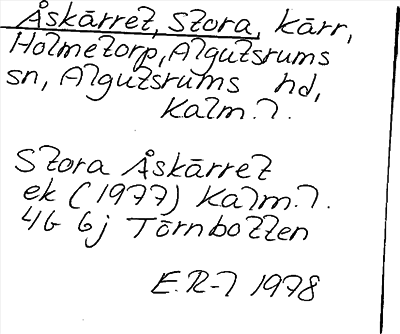 Åskärret, Stora, kärr,
Holmetorp, Algutsrums
sn, Algutsrums hd,
Kalm. l.
Stora Åskärret
ek (1977) Kalm. l.
4G 6j Törnbotten
E. R-l 1978